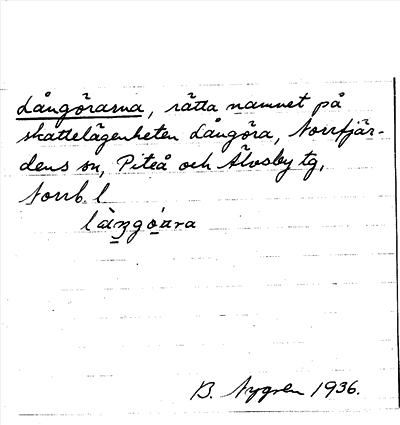 Långörarna, rätta namnet på
skattelägenheten Långöra, Norrfjär-
dens sn, Piteå och Älvsby tg,
Norrb. l
B. Nygren 1936.